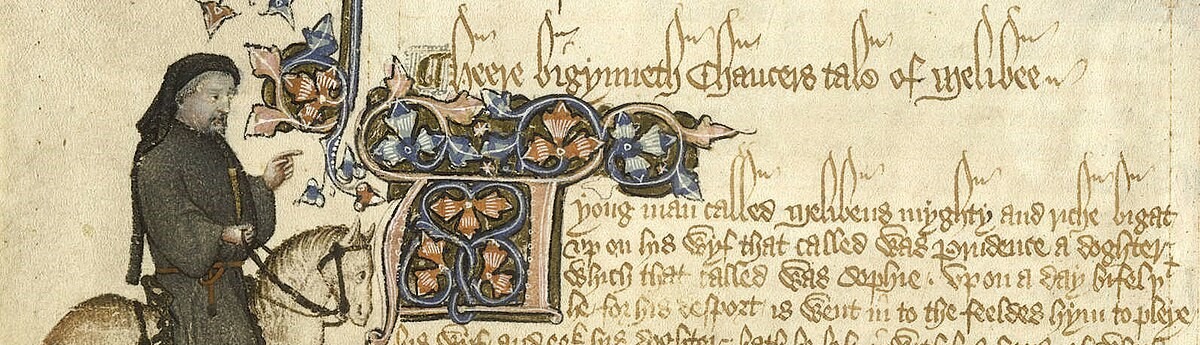 Heere bigynneth Chaucers tale of Melibee
A yong man called Melibeus myghty and riche bigat
up on his wyf that called was Prudence a doghter
which that called was Sophie. Upon a day bifel þt
he for his desport is went in to the feeldes hym to pleye
his wyf and eek his doghter